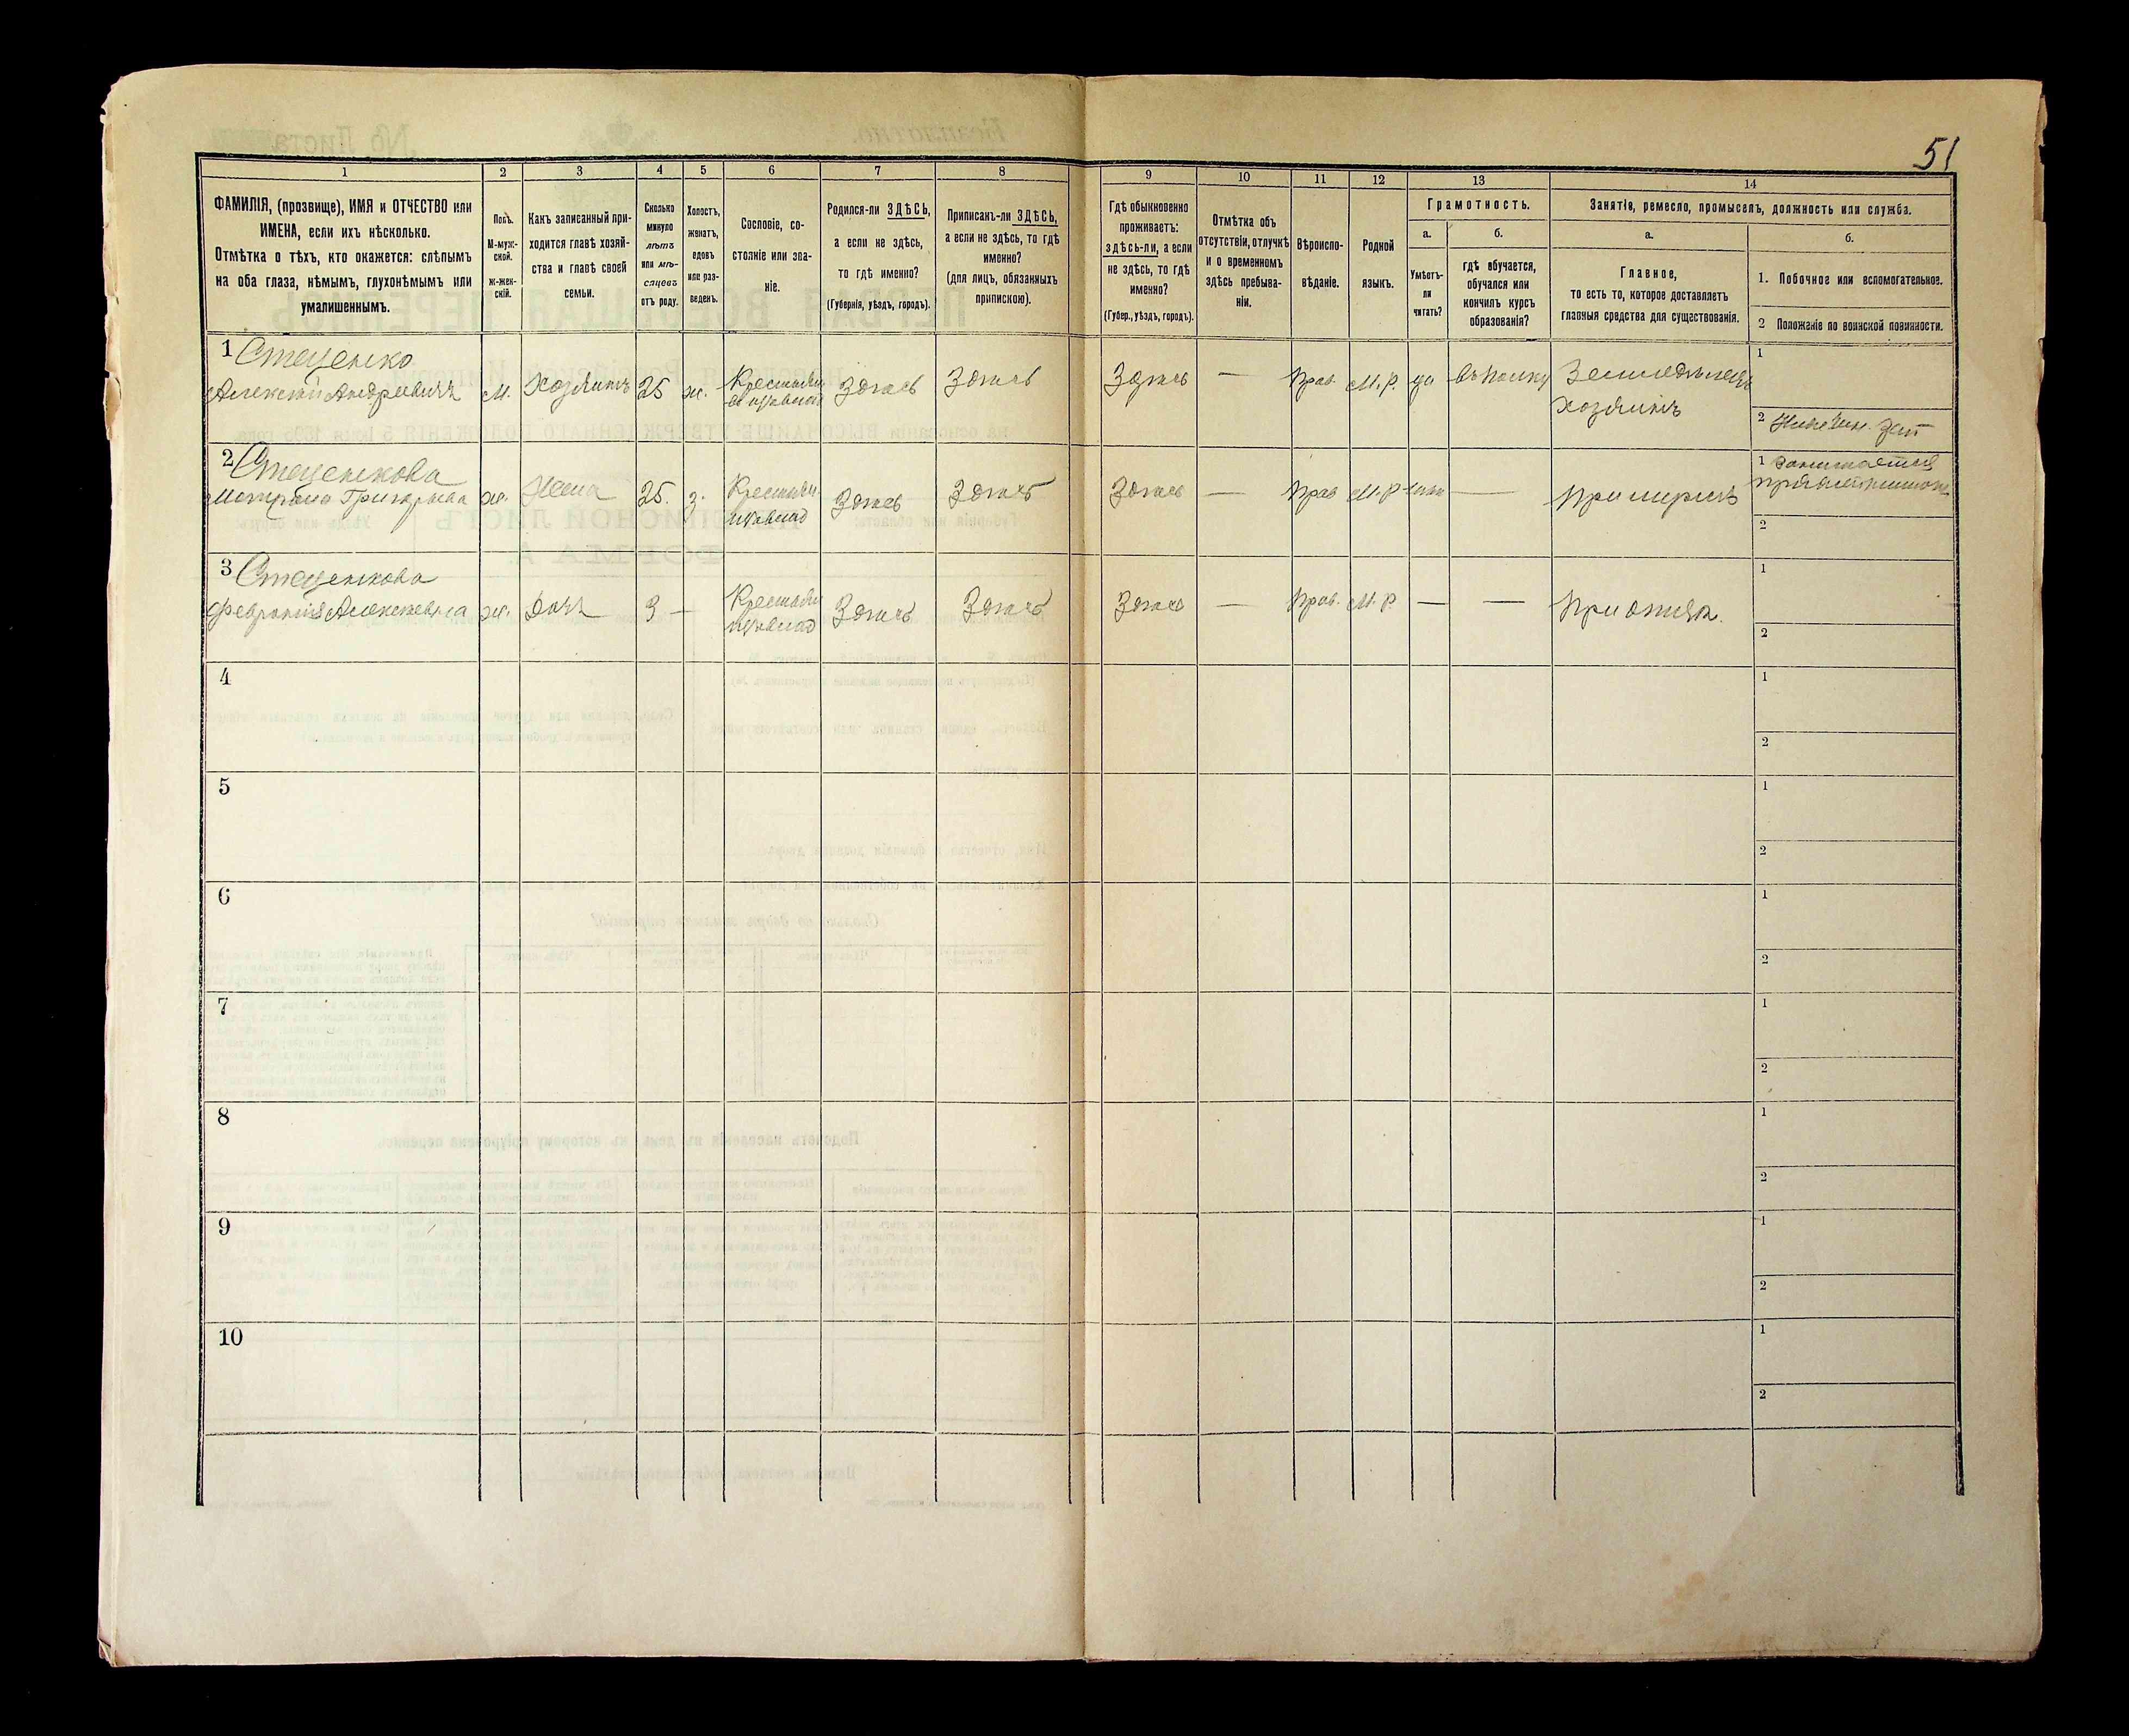 51
1
2
3
4
5
6
7
8
9
10
11
12
13
14
ФАМИЛІЯ, (прозвище), ИМЯ и ОТЧЕСТВО или
ИМЕНА, если ихъ нѣсколько.
Отмѣтка о тѣхъ, кто окажется: слѣпымъ
на оба глаза, нѣмымъ, глухонѣмымъ или
умалишеннымъ.
Полъ.
М-муж-
ской.
Ж-жен-
скій.
Какъ записанный при-
ходится главѣ хозяй-
ства и главѣ своей
семьи.
Сколько
минуло
лѣтъ
или мѣ-
сяцевъ
отъ роду.
Холостъ,
женатъ,
вдовъ
или раз-
веденъ.
Сословіе, со-
стояніе или зва-
ніе.
Родился-ли ЗДѢСЬ,
а если не здѣсь,
то гдѣ именно?
(Губернія, уѣздъ, городъ).
Приписанъ-ли ЗДѢСЬ,
а если не здѣсь, то гдѣ
именно?
(для лицъ, обязанныхъ
припискою).
Гдѣ обыкновенно
проживаетъ:
здѣсь-ли, а если
не здѣсь, то гдѣ
именно?
(Губер., уѣздъ, городъ).
Отмѣтка объ
отсутствіи, отлучкѣ
и о временномъ
здѣсь пребыва-
ніи.
Вѣроиспо-
вѣданіе.
Родной
языкъ.
Грамотность.
а.
Умѣетъ-
ли
читать?
б.
гдѣ обучается,
обучался или
кончилъ курсъ
образованія?
Занятіе, ремесло, промыселъ, должность или служба.
а.
Главное,
то есть то, которое доставляетъ
главныя средства для существованія.
б.
1. Побочное или вспомогательное.
2 Положеніе по воинской повинности.
1 Стеценко
Алексѣй Андреевичъ М. Хозяинъ 25 ж. Здѣсь Здѣсь Здѣсь — Прав. М. р. да Земледѣлецъ
хозяинъ
1
2
2 Стеценкова
ж. Жена 25. з. Здѣсь Здѣсь Здѣсь — Прав М. р — При мужѣ
1 занимается
2
3 Стеценкова
Февронія Алексѣевна ж. Дочь 3 — Здѣсь Здѣсь Здѣсь — Прав. М. р. — — При отцѣ.
1
2
4
1
2
5
1
2
6
1
2
7
1
2
8
1
2
9
1
2
10
1
2